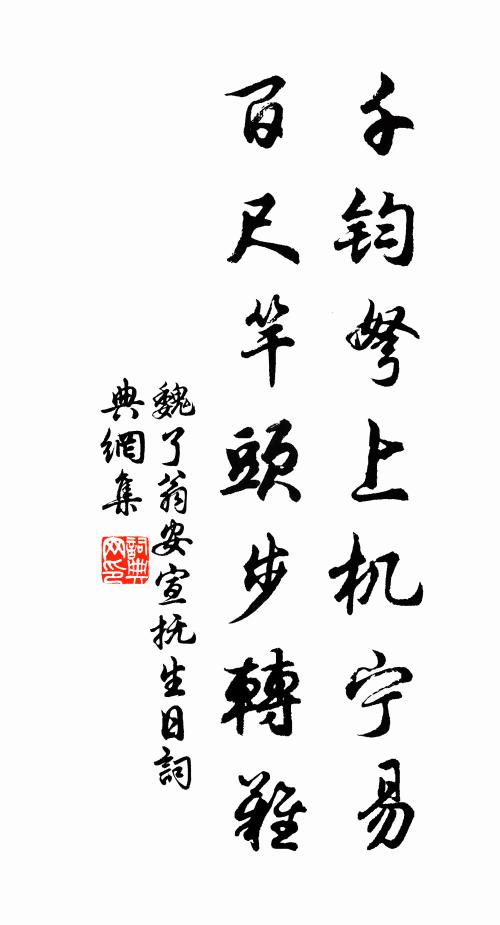 千钧弩上机宁易
百尺竿頭步轉難
魏了翁安宣抚生日詞
典網集
詞典网印